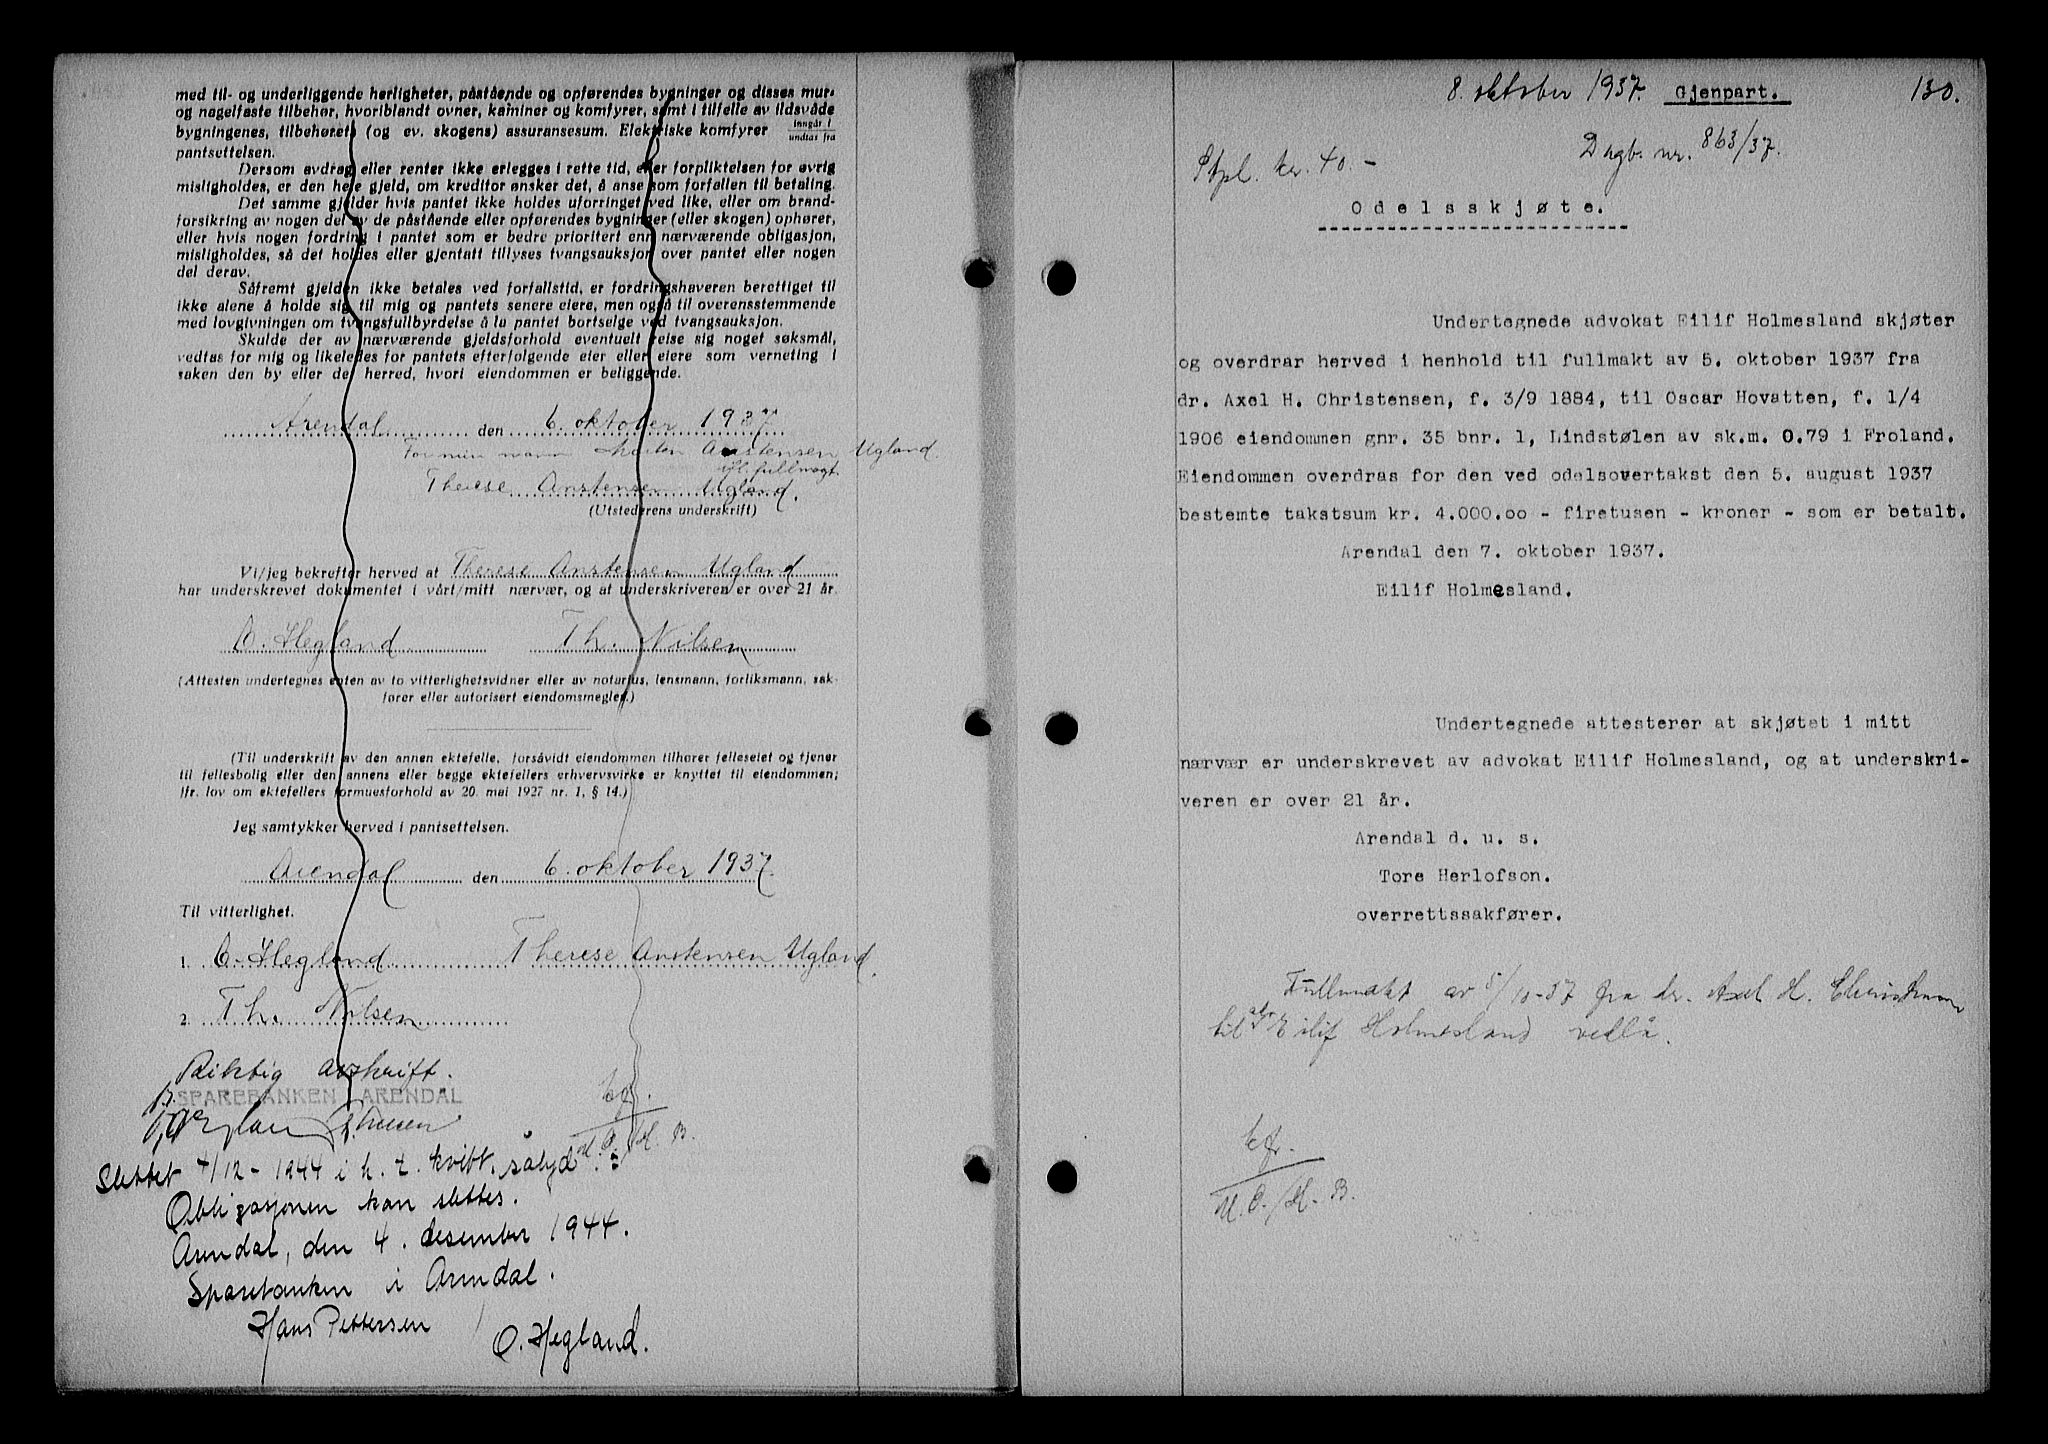 med til- og underliggende herligheter, påstående og opførendes bygninger og disses mur-
og nagelfaste tilbehør, hvoriblandt ovner, kaminer og komfyrer, samt i tilfelle av ildsvåde
bygningenes, tilbehørets (og ev. skogens) assuransesum. Elektriske komfyrer inngår i / undtas fra
pantsettelsen.
Dersom avdrag eller renter ikke erlegges i rette tid, eller forpliktelsen for øvrig
misligholdes, er den hele gjeld, om kreditor ønsker det, å anse som forfallen til betaling.
Det samme gjelder hvis pantet ikke holdes uforringet ved like, eller om brand-
forsikring av nogen del av de påstående eller opførendes bygninger (eller skogen) ophører,
eller hvis nogen fordring i pantet som er bedre prioritert enn nærværende obligasjon,
misligholdes, så det holdes eller gjentatt tillyses tvangsauksjon over pantet eller nogen
del derav.
Såfremt gjelden ikke betales ved forfallstid, er fordringshaveren berettiget til
ikke alene å holde sig til mig og pantets senere eiere, men også til overensstemmende
med lovgivningen om tvangsfullbyrdelse å la pantet bortselge ved tvangsauksjon.
Skulde der av nærværende gjeldsforhold eventuelt reise sig noget søksmål,
vedtas for mig og likeledes for pantets efterfølgende eier eller eiere som verneting i
saken den by eller det herred, hvori eiendommen er beliggende.
Arendal den 6. oktober 1937
For min mann Anstensen Ugland
fl. fullmagt.
Therese Anstensen Ugland.
(Utstederens underskrift)
Vi/jeg bekrefter herved at Therese Anstensen Ugland
har underskrevet dokumentet i vårt/mitt nærvær, og at underskriveren er over 21 år.
O. Hegland Th. Nilsen
(Attesten undertegnes enten av to vitterlighetsvidner eller av notarius, lensmann, forliksmann, sak-
fører eller autorisert eiendomsmegler.)
(Til underskrift av den annen ektefelle, forsåvidt eiendommen tilhører felleseiet og tjener
til fellesbolig eller den annens eller begge ektefellers erhvervsvirke er knyttet til eiendommen;
jfr. lov om ektefellers formuesforhold av 20. mai 1927 nr. 1, § 14.)
Jeg samtykker herved i pantsettelsen.
Arendal den 6. oktober 1937.
Til vitterlighet.
1. O. Hegland Therese Anstensen Ugland.
2. Th. Nilsen
Riktig avskrift.
p. SPAREBANKEN I ARENDAL
kfr.
M.O./H.B.
Slettet 4/12-1944 i h. t. kvitt. sålyd.:
Obligasjonen kan slettes.
Arendal, den 4. desember 1944.
Sparebanken i Arendal.
Hans Pettersen O. Hegland.
8. oktober 1937. Gjenpart. 130.
Dagb. nr. 863/37.
Stpl. kr. 40.-
Odelsskjøte.
Undertegnede advokat Eilif Holmesland skjøter
og overdrar herved i henhold til fullmakt av 5. oktober 1937 fra
dr. Axel H. Christensen, f. 3/9 1884, til Oscar Hovatten, f. 1/4
1906 eiendommen gnr. 35 bnr. 1, Lindstølen av sk.m. 0.79 i Froland.
Eiendommen overdras for den ved odelsovertakst den 5. august 1937
bestemte takstsum kr. 4.000.oo - firetusen - kroner - som er betalt.
Arendal den 7. oktober 1937.
Eilif Holmesland.
Undertegnede attesterer at skjøtet i mitt
nærvær er underskrevet av advokat Eilif Holmesland, og at underskri-
veren er over 21 år.
Arendal d. u. s.
Tore Herlofson.
overrettssakfører.
Fullmakt av 5/10-37 fra dr. Axel H. Christensen
til adv. Eilif Holmesland vedlå.
kfr.
M.O./H.B.